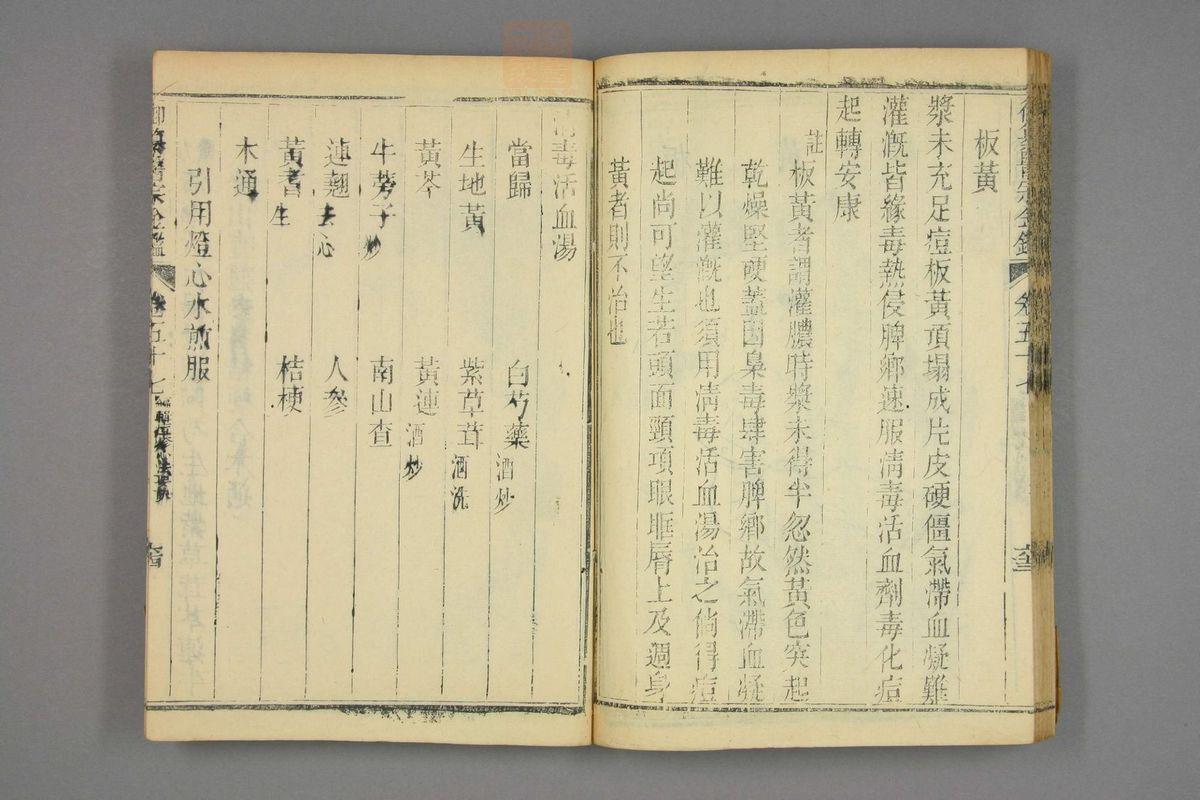 板黃
漿未充足痘板黃頂塌成片皮硬僵氣滯血凝難
灌漑皆緣毒熱侵脾鄉速服淸毒活血劑毒化痘
起轉安康
註板黃者謂灌膿時漿未得半忽然黃色突起
乾燥堅硬蓋因梟毒肆害脾鄉故氣滯血凝
難以灌漑也須用淸毒活血湯治之倘得痘
起尚可望生若頭面頸項眼眶脣上及週身
黃者則不治也
淸毒活血湯
當歸 白芍藥酒炒
生地黃 紫草茸酒洗
黃芩 黃連酒炒
牛蒡子炒 南山查
連翹去心 人參
黃耆生 桔梗
木通
引用燈心水煎服
御纂醫宗金鑑 卷五十七 六三
御纂醫宗金鑑 卷五十七 六古